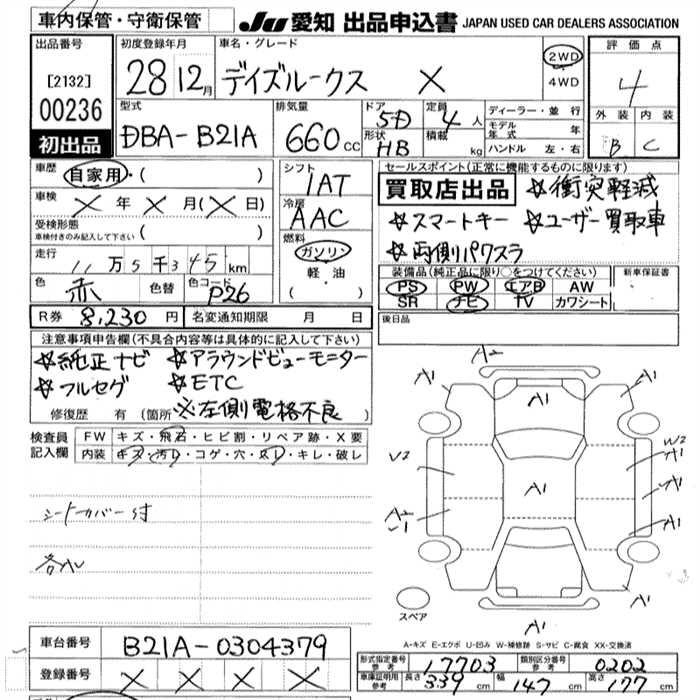 車内保管・守衛保管
JU 愛知 出品申込書 JAPAN USED CAR DEALERS ASSOCIATION
出品番号
[2132]
00236
初出品
初度登録年月
28 12月
車名・グレード
デイズルークス X
2WD
4WD
評価点
4
外装 内装
B C
型式
DBA-B21A
排気量
660cc
ドア
5D
定員
4人
形状
HB
積載
kg
ディーラー・並行
モデル年式 年
ハンドル 左・右
車歴
自家用・( )
車検
X年X月(X日)
受検形態
車検付きのみ記入して下さい ( )
走行
11万5千345km
色
赤
色替
色コード
P26
シフト
1AT
冷房
AAC
燃料
ガソリン・
軽・油
( )
セールスポイント(正常に機能するものに限ります)
買取店出品 ☆衝突軽減
☆スマートキー ☆ユーザー買取車
☆両側パワスラ
装備品(純正品に限り○をつけてください)
PS PW エアB AW
SR ナビ TV カワシート
新車保証書
後日品
R券 8,230円
名変通知期限 月 日
注意事項申告欄(不具合内容等は具体的に記入して下さい)
☆純正ナビ ☆アラウンドビューモニター
☆フルセグ ☆ETC
修復歴 有 (箇所 ※左側電格不良
検査員記入欄
FW キズ・飛石・ヒビ割・リペア跡・X要
内装 キズ・汚レ・コゲ・穴・スレ・キレ・破レ
シートカバー付
各ハレ
A2
A1
A1
A1
V2
A1
W2
A1
A1
A2
A1
A1
A1
スペア
A1
A-キズ E-エクボ U-凹み W-補修跡 S-サビ C-腐食 XX-交換済
車台番号 B21A-0304379
登録番号 X X X X
形式指定番号 参考 17703
類別区分番号 参考 0202
車庫証明用 参考 長さ 339cm 幅 147cm 高さ 177cm